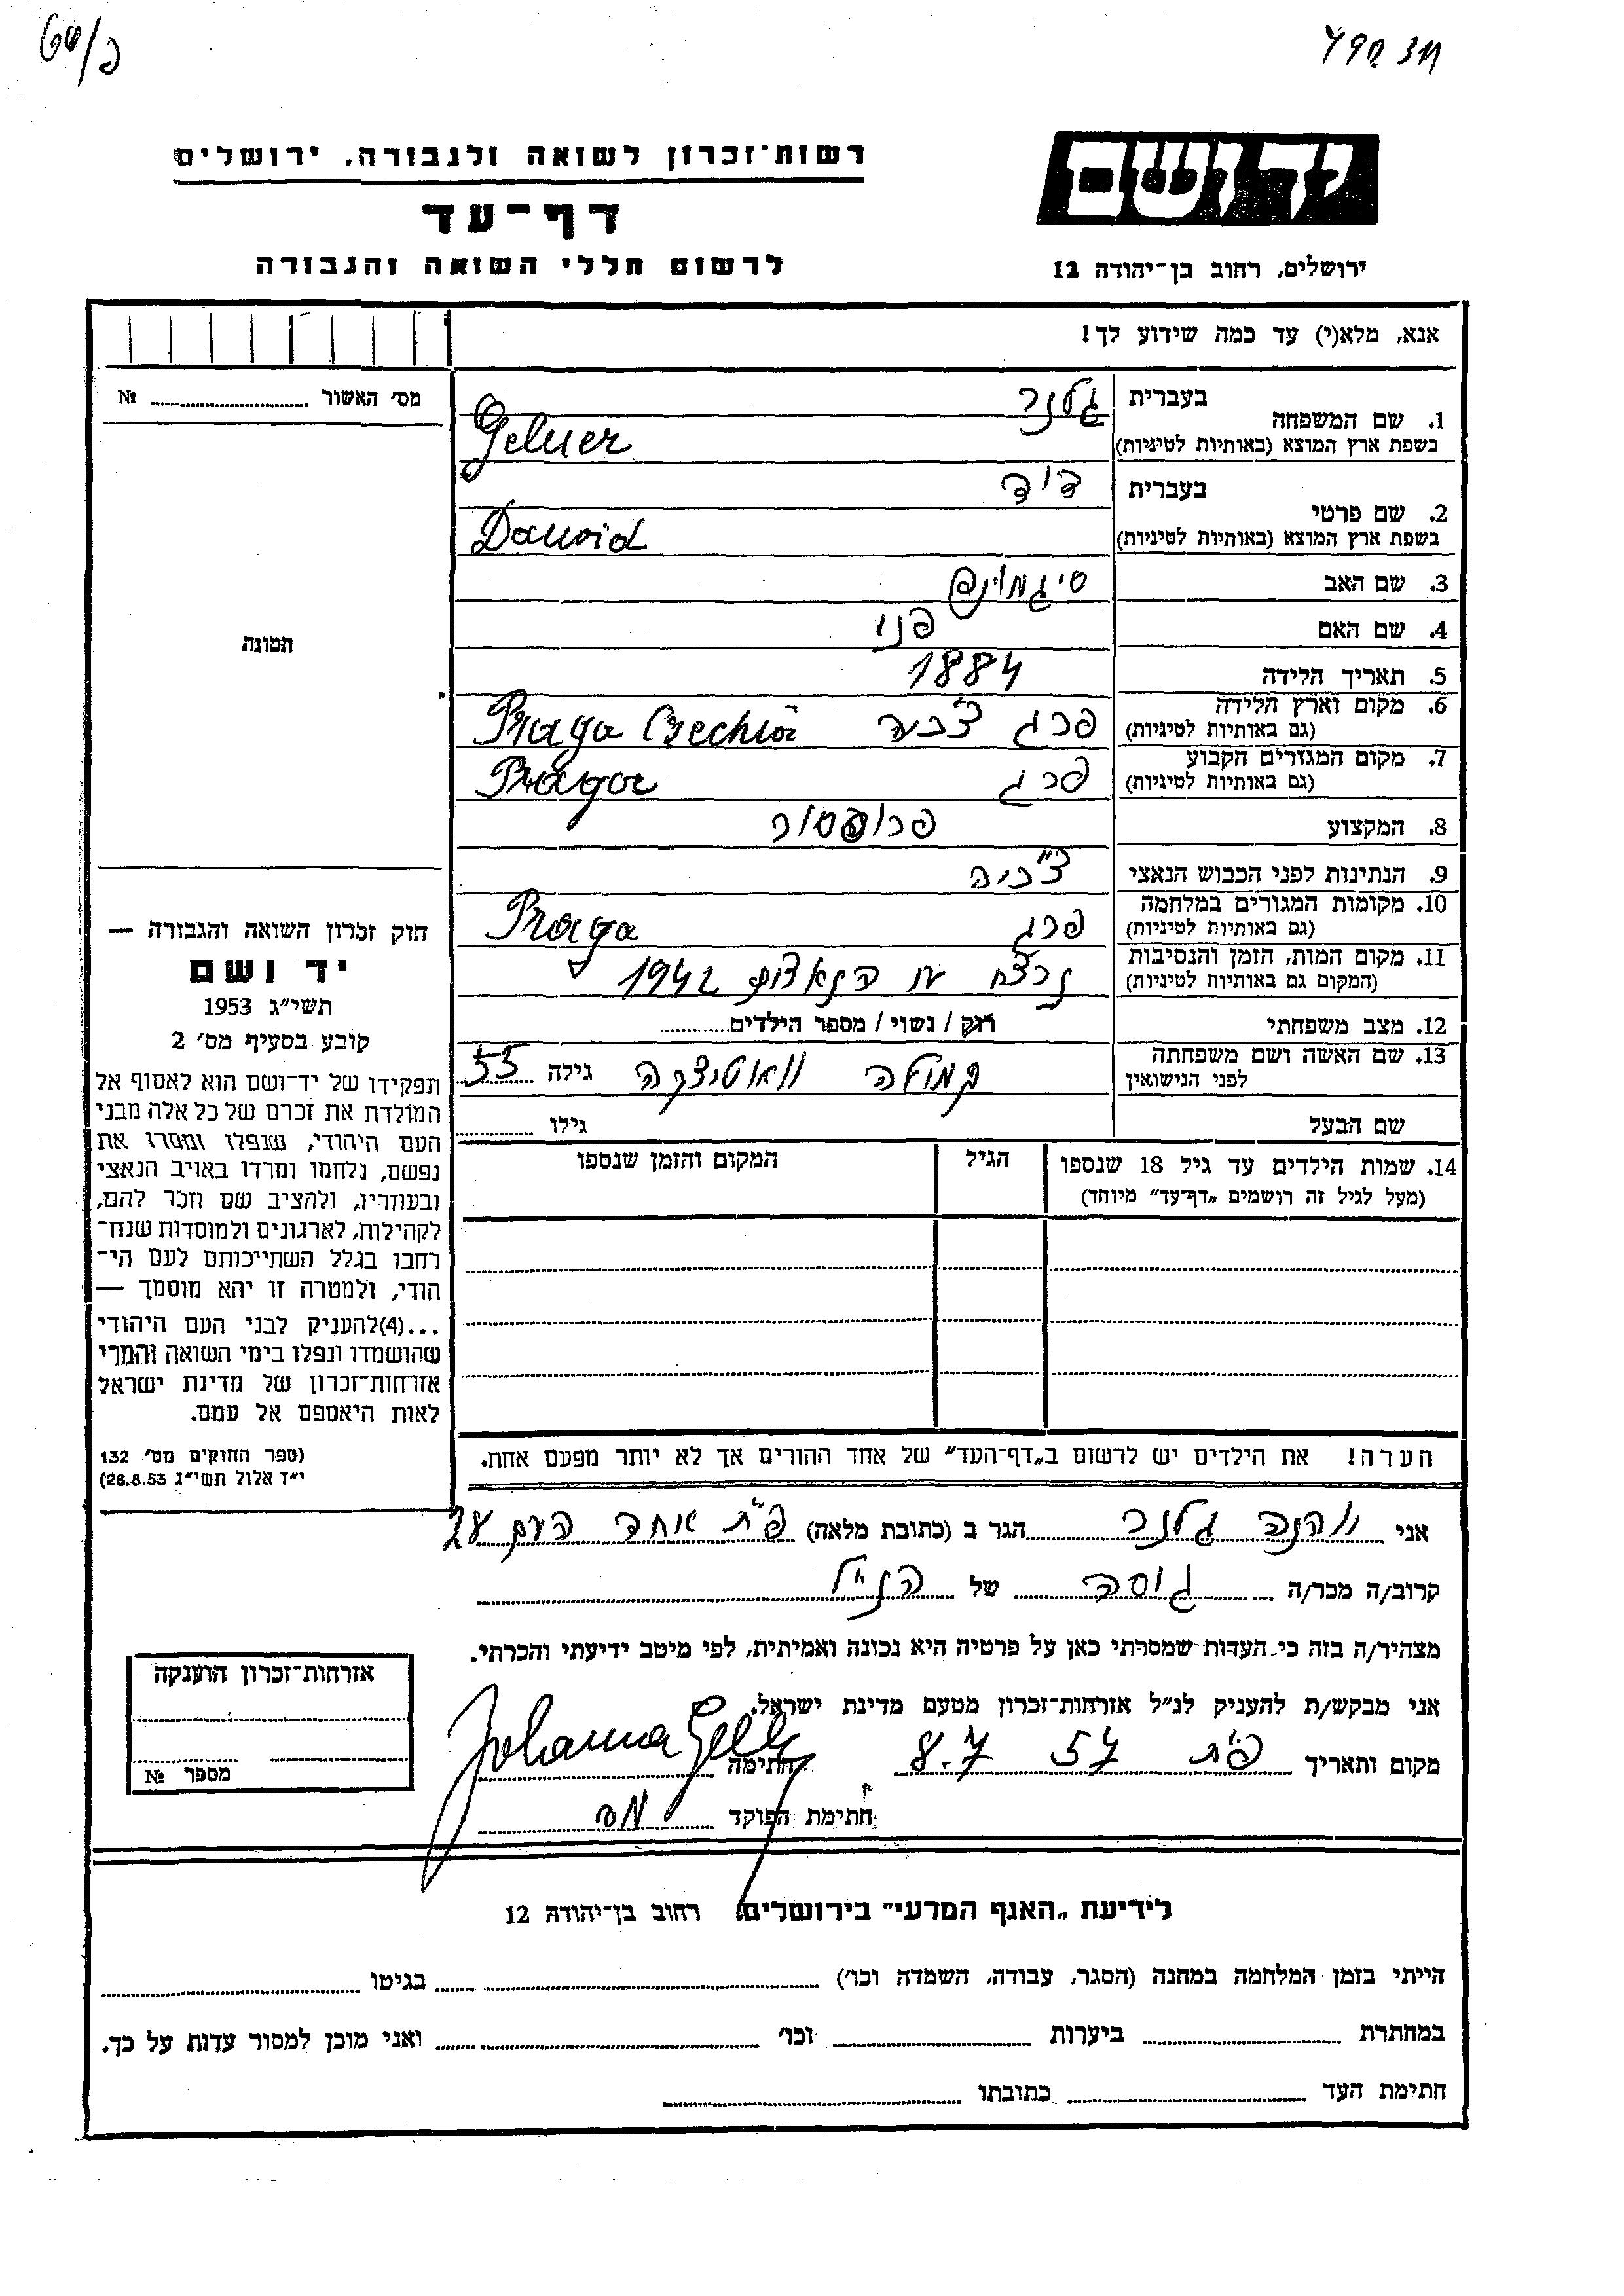 רשות־זכרון לשואה ולגבורה, ירושלים
דף־עד
לרשום חללי השואה והגבורה
יד ושם
ירושלים, רחוב בן־יהודה 12
אנא, מלא(י) עד כמה שידוע לך!
מס׳ האשור № 
תמונה
חוק זכרון השואה והגבורה —
יד ושם
תשי״ג 1953
קובע בסעיף מס׳ 2
תפקידו של יד־ושם הוא לאסוף אל
המולדת את זכרם של כל אלה מבני
העם היהודי, שנפלו ומסרו את
נפשם, נלחמו ומרדו באויב הנאצי
ובעוזריו, ולהציב שם וזכר להם,
לקהילות, לארגונים ולמוסדות שנח־
רבו בגלל השתייכותם לעם הי־
הודי, ולמטרה זו יהא מוסמך —
...(4)להעניק לבני העם היהודי
שהושמדו ונפלו בימי השואה והמרי
אזרחות־זכרון של מדינת ישראל
לאות היאספם אל עמם.
(ספר החוקים מס׳ 132
י״ז אלול תשי״ג 28.8.53)
בעברית גלנר
1. שם המשפחה
בשפת ארץ המוצא (באותיות לטיניות) Gelner
בעברית דוד
2. שם פרטי
בשפת ארץ המוצא (באותיות לטיניות) Dawid
3. שם האב סיגמונד
4. שם האם פני
5. תאריך הלידה 1884
6. מקום וארץ הלידה פרג
(גם באותיות לטיניות) Praga
7. מקום המגורים הקבוע פרג
(גם באותיות לטיניות) Praga
8. המקצוע פרופסור
9. הנתינות לפני הכבוש הנאצי צ׳כיה
10. מקומות המגורים במלחמה פרג
(גם באותיות לטיניות) Praga
11. מקום המות, הזמן והנסיבות 1942
(המקום גם באותיות לטיניות)
12. מצב משפחתי רוק / נשוי / מספר הילדים
13. שם האשה ושם משפחתה גילה 55
לפני הנישואין
שם הבעל גילו
14. שמות הילדים עד גיל 18 שנספו הגיל המקום והזמן שנספו
(מעל לגיל זה רושמים „דף־עד״ מיוחד)
הערה! את הילדים יש לרשום ב„דף־העד״ של אחד ההורים אך לא יותר מפעם אחת.
אני יוהנה גלנר הגר ב (כתובת מלאה) פ״ת אחד העם 28
קרוב/ה מכר/ה גיסה של הנ״ל
מצהיר/ה בזה כי העדות שמסרתי כאן על פרטיה היא נכונה ואמיתית, לפי מיטב ידיעתי והכרתי.
אני מבקש/ת להעניק לנ״ל אזרחות־זכרון מטעם מדינת ישראל.
מקום ותאריך פ״ת 57 8.7 חתימה Johanna
חתימת הפוקד
אזרחות־זכרון הוענקה
מספר №
לידיעת „האגף המדעי״ בירושלים, רחוב בן־יהודה 12
הייתי בזמן המלחמה במחנה (הסגר, עבודה, השמדה וכו׳) בגיטו
במחתרת ביערות וכו׳ ואני מוכן למסור עדות על כך.
חתימת העד כתובתו